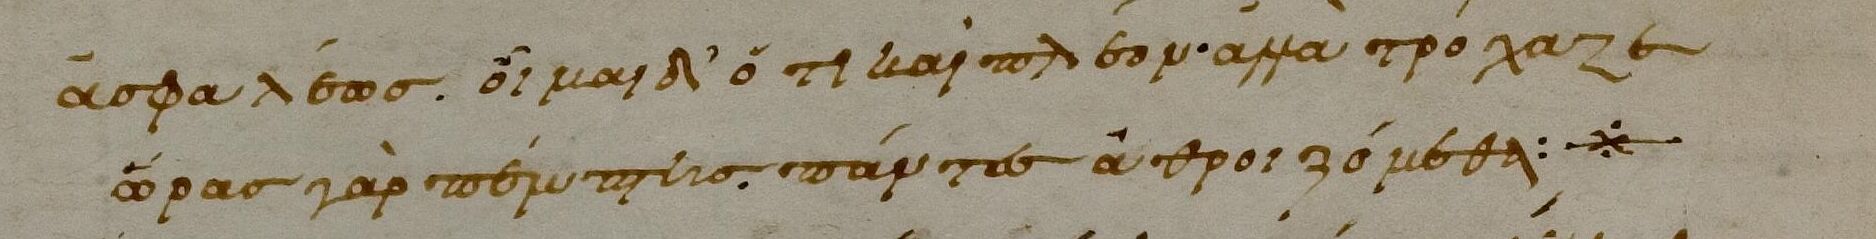 ἀσφαλέως. οἶμαι δ' ὅτι καὶ πλέον· ἀλλὰ τρόχαζε
ὥρας γὰρ πέμπτης. πάντες ἀθροιζόμεθα: